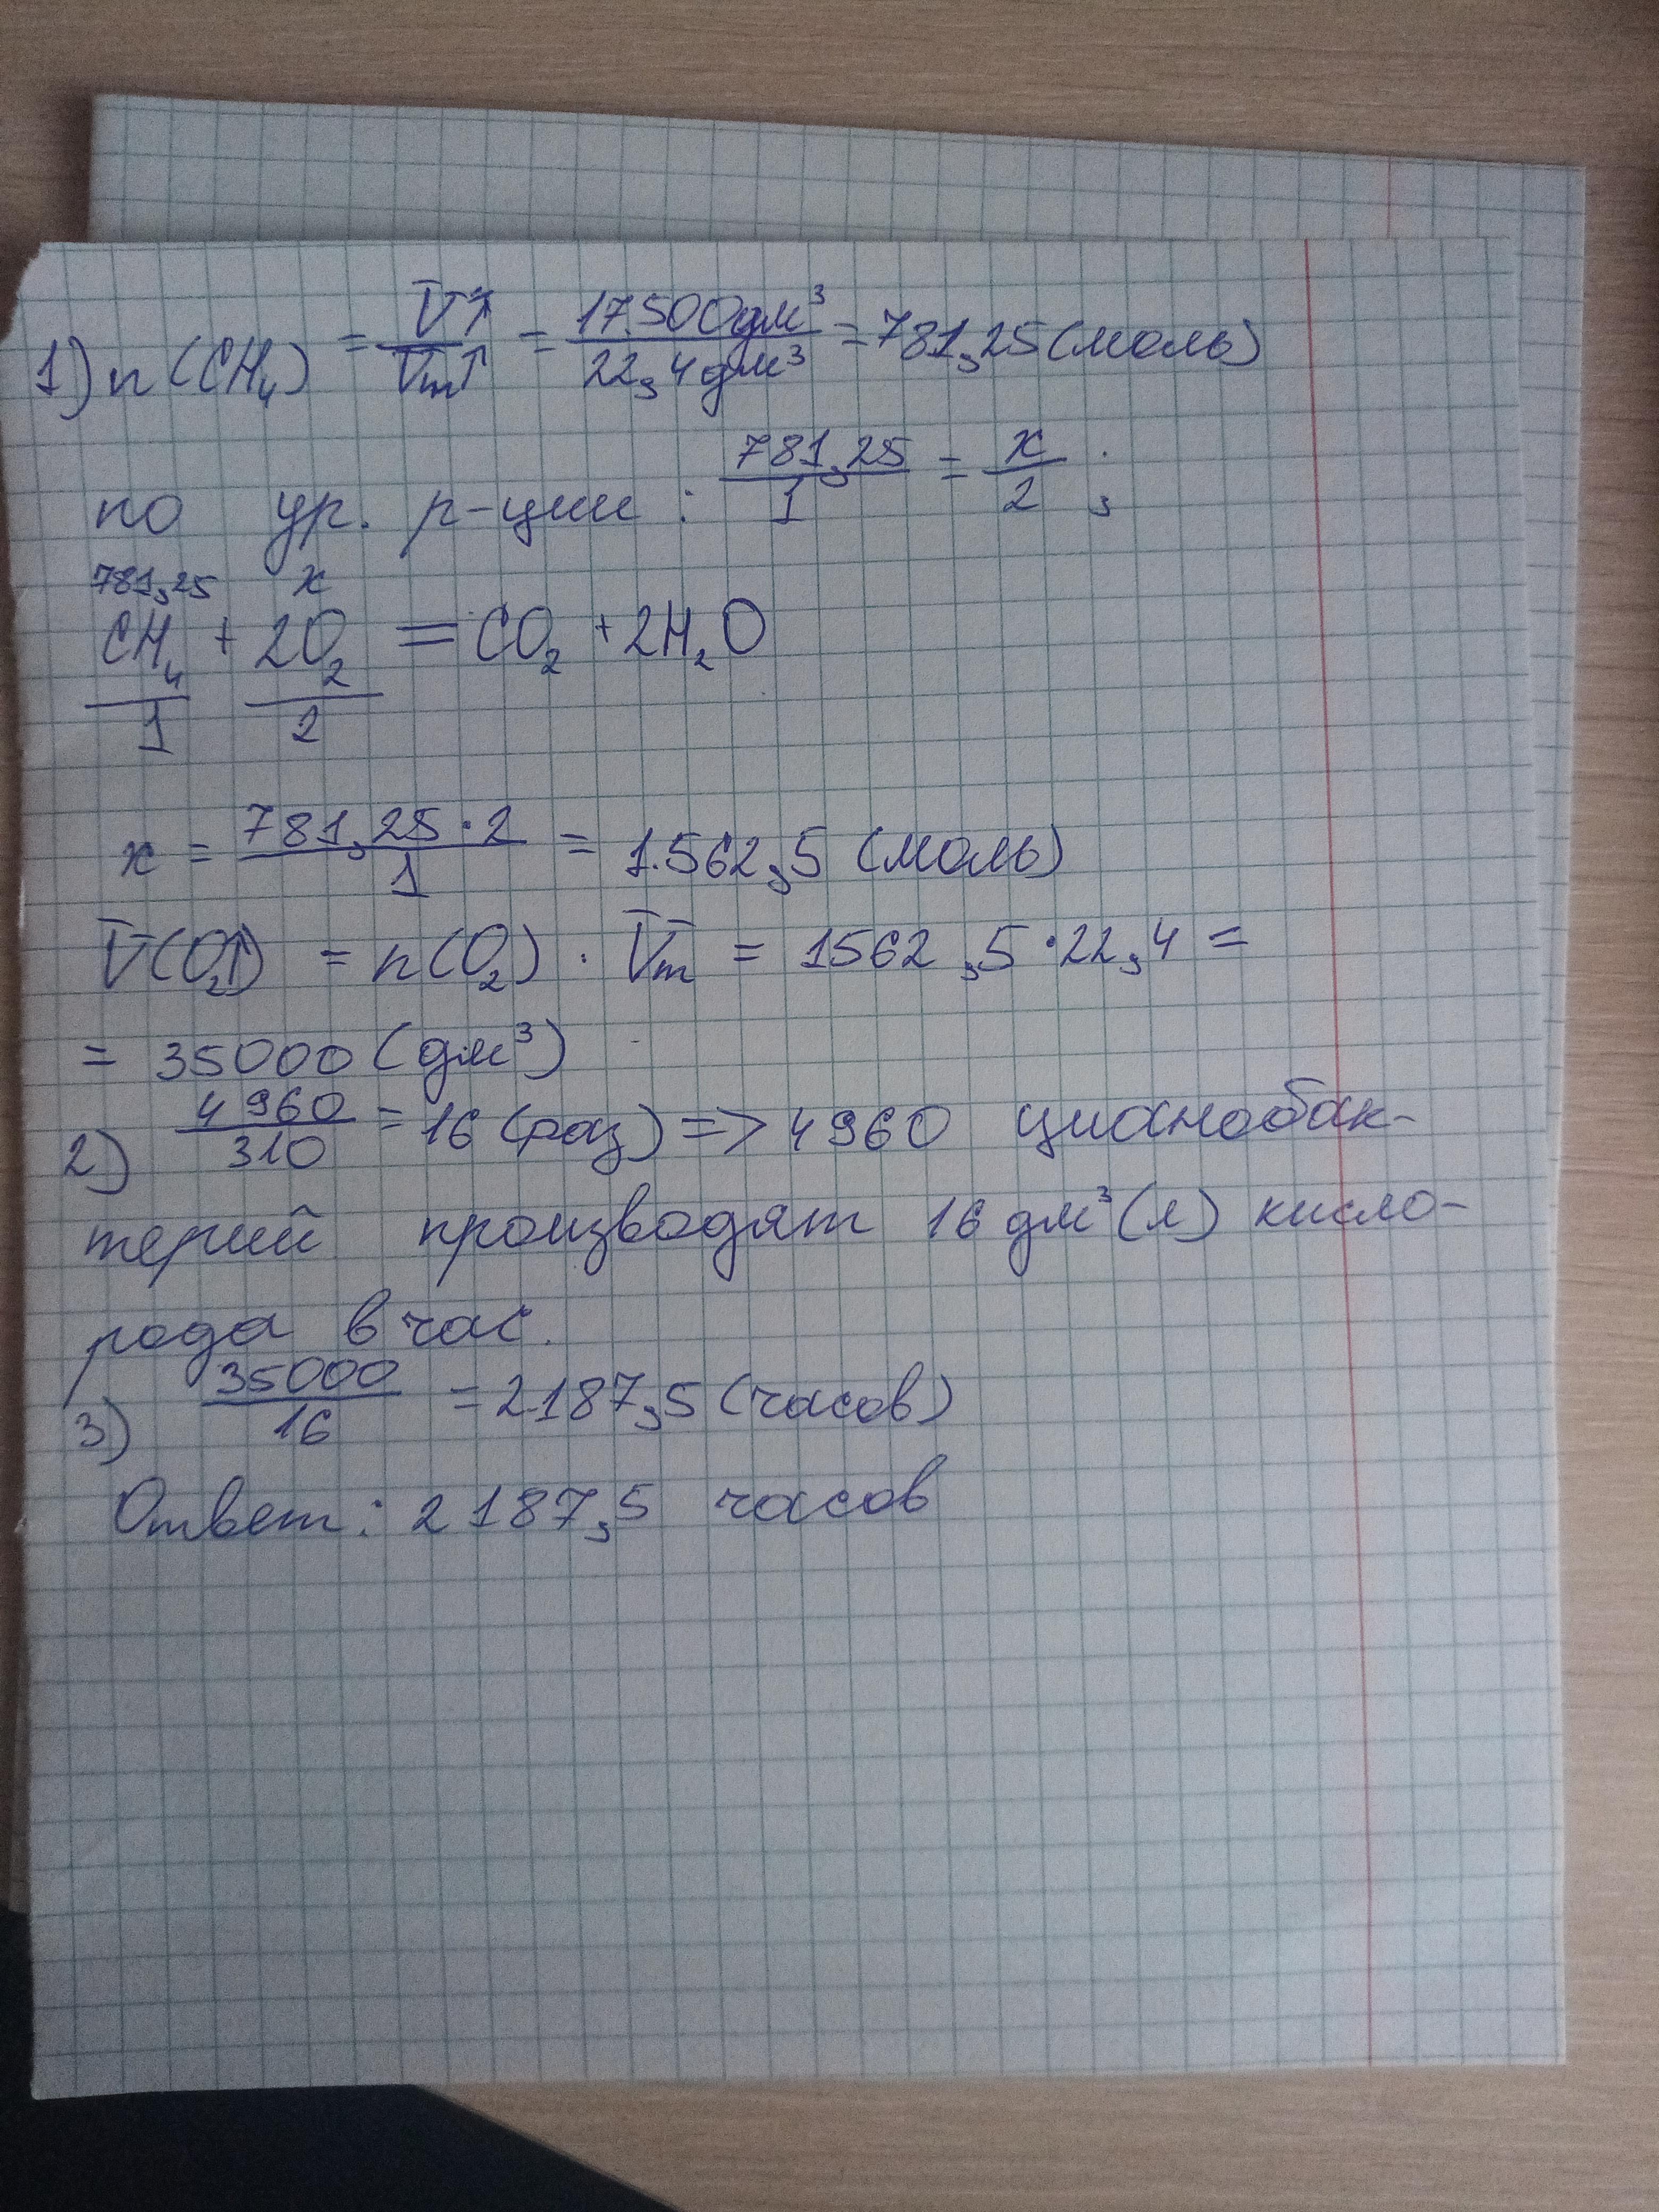 1) n(CH₄) = V↑/Vm↑ = 17.500дм³/22,4дм³ = 781,25 (моль)
по ур. р-ции: 781,25/1 = x/2;
781,25 x
CH₄ + 2O₂ = CO₂ + 2H₂O
1 2
x = 781,25·2/1 = 1.562,5 (моль)
V(O₂↑) = n(O₂) · Vm = 1562,5·22,4 =
= 35000 (дм³)
2) 4960/310 = 16 (раз) => 4960 цианобак-
терий производят 16 дм³ (л) кисло-
рода в час.
3) 35000/16 = 2187,5 (часов)
Ответ: 2187,5 часов